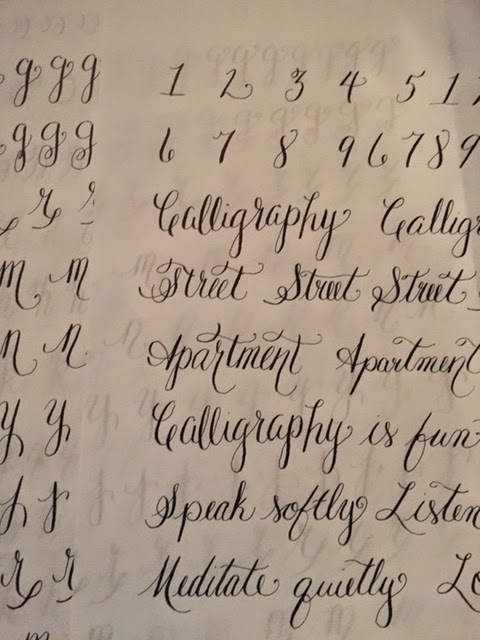 g g g 1 2 3 4 5 1
g g g 6 7 8 9 6 7 8 9
Calligraphy
m m Street Street Street
n n Apartment Apartment
y y Calligraphy is fun
Speak softly Listen
r r Meditate quietly